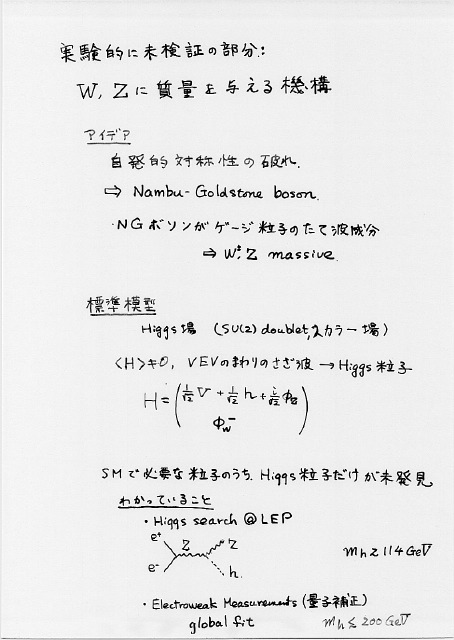 実験的に未検証の部分:
W, Zに質量を与える機構
アイデア
自発的対称性の破れ.
⇒ Nambu-Goldstone boson.
・NGボソンがゲージ粒子のたて波成分
⇒ W±, Z massive.
標準模型
Higgs場 (SU(2) doublet, スカラー場)
〈H〉≠0, VEVのまわりのさざ波 → Higgs粒子
H = ( 1/√2 V + 1/√2 h + i/√2 φz
φw⁻ )
SMで必要な粒子のうち, Higgs粒子だけが未発見
わかっていること
・Higgs search @ LEP
e⁺ Z Z
mh ≥ 114 GeV
e⁻ h.
・Electroweak Measurements (量子補正)
global fit mh ≲ 200 GeV